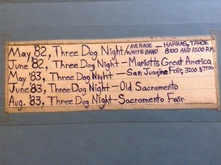 May '82, Three Dog Night/AVERAGE WHITE BAND - HARRAHS, TAHOE 8:00 AND 12:00 P.M.
June '82, Three Dog Night - Marriott's Great America
May '83, Three Dog Night - San Joaquin Fair,
June '83, Three Dog Night - Old Sacramento
Aug. '83, Three Dog Night - Sacramento Fair